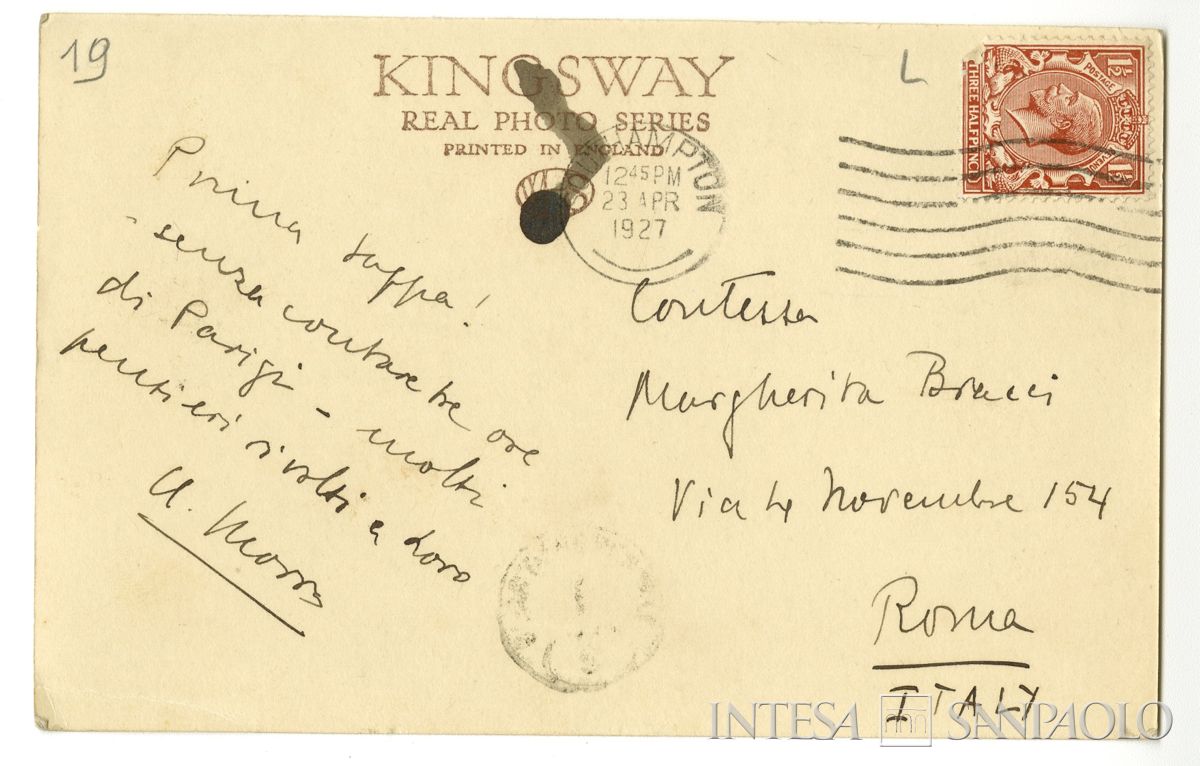 19
L
KINGSWAY
REAL PHOTO SERIES
PRINTED IN ENGLAND
POSTAGE
1½
THREE HALFPENCE
1½
SOUTHAMPTON
12 45 PM
23 APR
1927
Prima tappa!
- senza contare tre ore
di Parigi - molti
pensieri rivolti a loro
U. Morra
Contessa
Margherita Bracci
Via 4 Novembre 154
Roma
ITALY
INTESA SANPAOLO